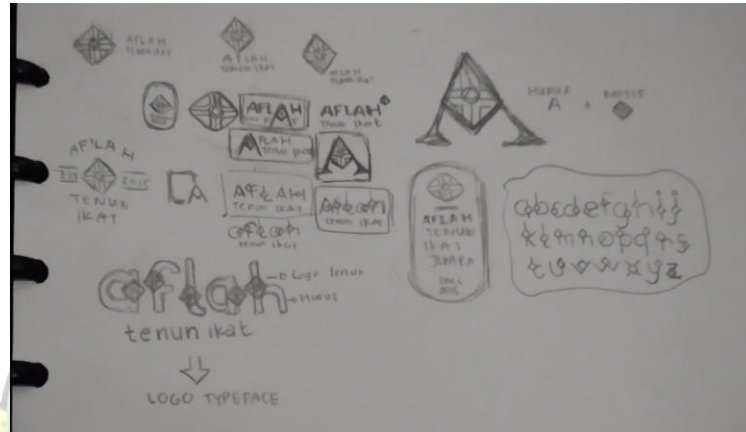 AFLAH
TENUN IKAT
AFLAH
TENUN IKAT
AFLAH
TENUN IKAT
AFLAH
TENUN IKAT
AFLAH
tenun ikat
AFLAH
TENUN IKAT
HURUF
A
+
MOTIF
AFLAH
2015
TENUN
IKAT
A
AFLAH
TENUN IKAT
AFLAH
TENUN IKAT
aflah
tenun ikat
A
AFLAH
TENUN
IKAT
JEPARA
2015
abcdefghij
klmnopqrs
tuvwxyz
aflah
Logo tenun
HURUF
tenun ikat
LOGO TYPEFACE